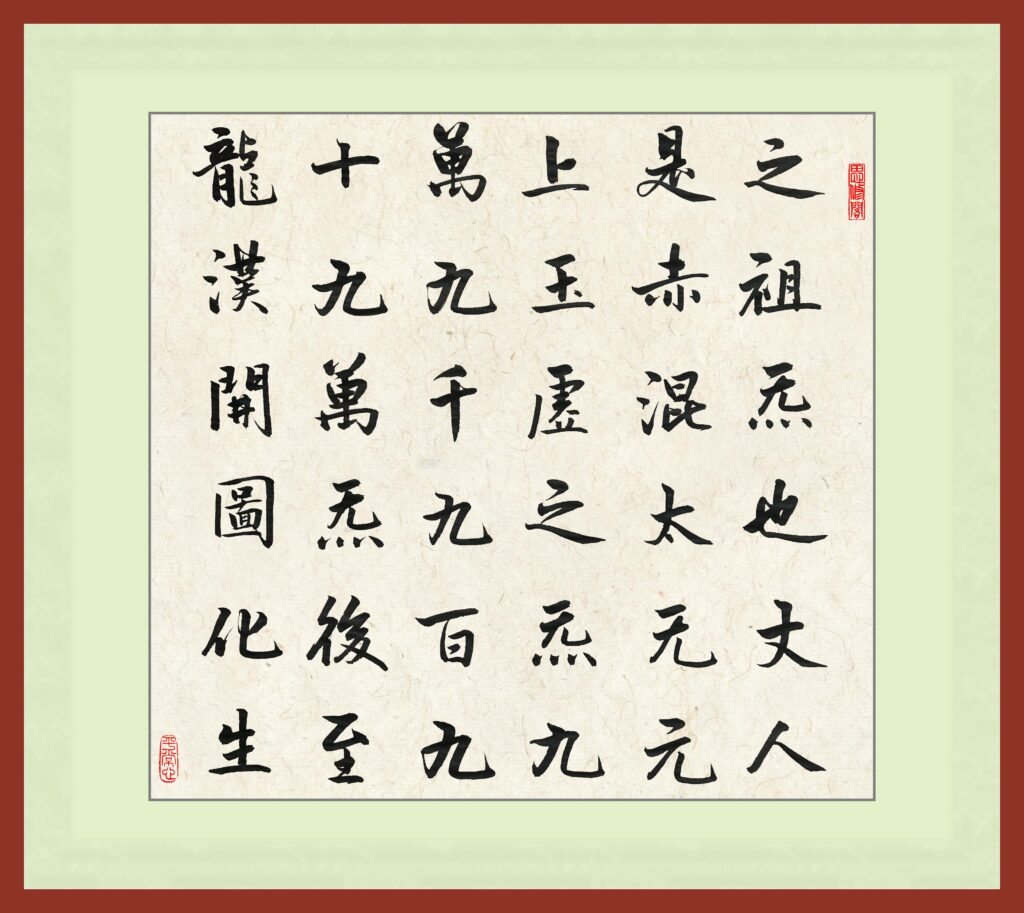 之祖炁也丈人
是赤混太无元
上玉虛之炁九
萬九千九百九
十九萬炁後至
龍漢開圖化生
思脩閣
平常心